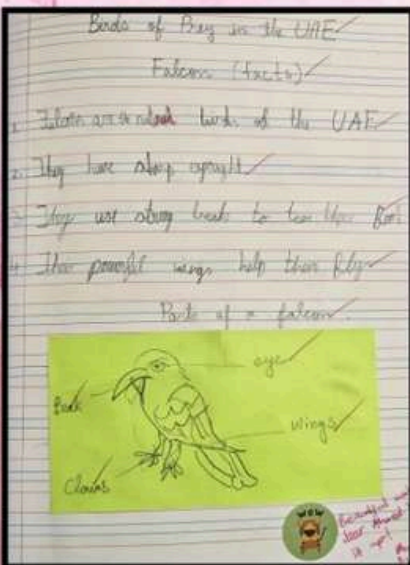 Birds of Prey in the UAE
Falcon (facts)
1. Falcon are birds of the UAE
2. They have sharp eyesight
3. They use strong beaks to tear their food
4. Their powerful wings help them fly
Parts of a falcon.
eye
Beak
wings
Claws
WOW
Beautiful
dear Ahmed